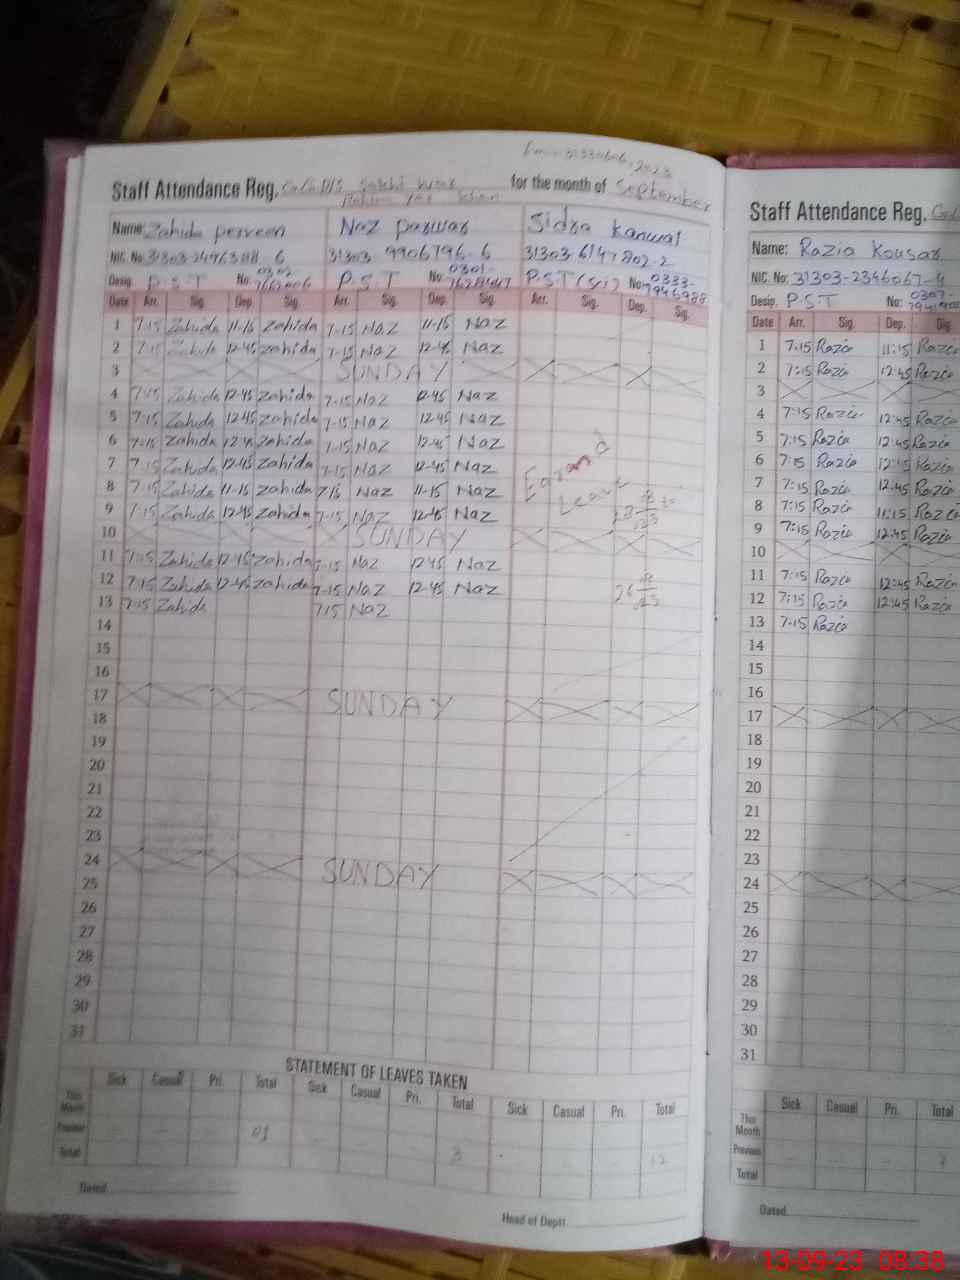 Staff Attendance Reg. for the month of September
Name: Zahida perveen Naz parwar Sidra Kanwal
NIC. No 31303-2496388-6 31303-9906796-6 31303-6147802-2
Desig. P.S.T No: 0302- P.S.T No: 0301- P.S.T (Sci) No: 0333-7946988
Date Arr. Sig. Dep. Sig. Arr. Sig. Dep. Sig. Arr. Sig. Dep. Sig.
1 7-15 Zahida 11-15 Zahida 7-15 NAZ 11-15 Naz
2 7-15 Zahida 12-45 Zahida 7-15 NAZ 12-45 Naz
3 SUNDAY
4 7-15 Zahida 12-45 Zahida 7-15 NAZ 12-45 Naz
5 7-15 Zahida 12-45 Zahida 7-15 NAZ 12-45 Naz
6 7-15 Zahida 12-45 Zahida 7-15 NAZ 12-45 Naz
7 7-15 Zahida 12-45 Zahida 7-15 NAZ 12-45 Naz
8 7-15 Zahida 11-15 Zahida 7-15 NAZ 11-15 Naz
9 7-15 Zahida 12-45 Zahida 7-15 NAZ 12-45 Naz
Leave
10 SUNDAY
11 7-15 Zahida 12-45 Zahida 7-15 NAZ 12-45 Naz
12 7-15 Zahida 12-45 Zahida 7-15 NAZ 12-45 Naz
13 7-15 Zahida 7-15 NAZ
14
15
16
17 SUNDAY
18
19
20
21
22
23
24 SUNDAY
25
26
27
28
29
30
31
STATEMENT OF LEAVES TAKEN
Sick Casual Pri. Total Sick Casual Pri. Total Sick Casual Pri. Total
This Month
Previous 01 3 12
Total
Dated
Head of Deptt
Staff Attendance Reg.
Name: Razia Kousar
NIC. No: 31303-2346067-4
Desig. P.S.T No: 0307-
Date Arr. Sig. Dep. Sig.
1 7:15 Razia 11:15 Razia
2 7:15 Razia 12:45 Razia
3
4 7:15 Razia 12:45 Razia
5 7:15 Razia 12:45 Razia
6 7:15 Razia 12:45 Razia
7 7:15 Razia 12:45 Razia
8 7:15 Razia 11:15 Razia
9 7:15 Razia 12:45 Razia
10
11 7:15 Razia 12:45 Razia
12 7:15 Razia 12:45 Razia
13 7-15 Razia
14
15
16
17
18
19
20
21
22
23
24
25
26
27
28
29
30
31
Sick Casual Pri. Total
This Month
Previous
Total
Dated
13-09-23 08:38